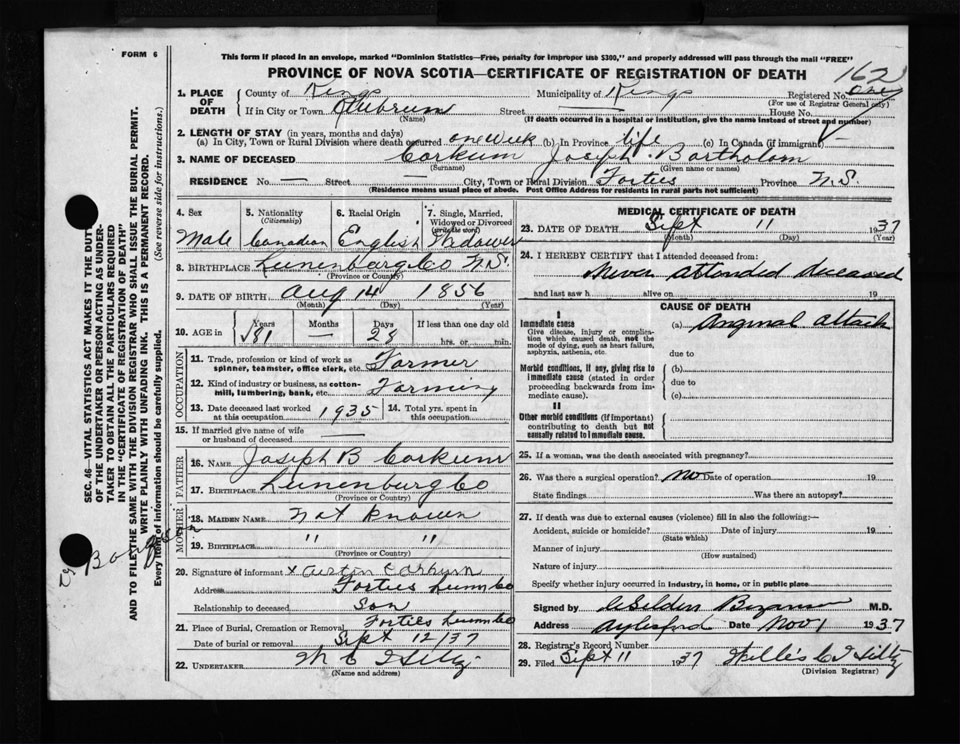 FORM 6
This form if placed in an envelope, marked "Dominion Statistics—Free, penalty for improper use $300," and properly addressed will pass through the mail "FREE"
PROVINCE OF NOVA SCOTIA—CERTIFICATE OF REGISTRATION OF DEATH
162
1. PLACE OF DEATH
County of Kings Municipality of Kings Registered No. one
(For use of Registrar General only)
If in City or Town Street — House No.
(Name) (If death occurred in a hospital or institution, give the name instead of street and number)
2. LENGTH OF STAY (in years, months and days)
(a) In City, Town or Rural Division where death occurred one week (b) In Province life (c) In Canada (if immigrant)
3. NAME OF DECEASED Corkum Joseph Bartholom
(Surname) (Given name or names)
RESIDENCE No. — Street — City, Town or Rural Division Forties Province N.S.
(Residence means usual place of abode. Post Office Address for residents in rural parts not sufficient)
4. Sex Male
5. Nationality (Citizenship) Canadian
6. Racial Origin English
7. Single, Married, Widowed or Divorced (write the word) Widower
8. BIRTHPLACE Lunenburg Co N.S.
(Province or Country)
9. DATE OF BIRTH Aug 14 1856
(Month) (Day) (Year)
10. AGE in Years 81 Months — Days 28 If less than one day old
hrs. or min.
OCCUPATION
11. Trade, profession or kind of work as spinner, teamster, office clerk, etc. Farmer
12. Kind of industry or business, as cotton-mill, lumbering, bank, etc. Farming
13. Date deceased last worked at this occupation 1935 14. Total yrs. spent in this occupation
15. If married give name of wife or husband of deceased —
FATHER
16. NAME Joseph B Corkum
17. BIRTHPLACE Lunenburg Co
(Province or Country)
MOTHER
18. MAIDEN NAME Not known
19. BIRTHPLACE " "
(Province or Country)
20. Signature of informant x Austin Corkum
Address Forties Lunn Co
Relationship to deceased son
21. Place of Burial, Cremation or Removal Forties Lunn Co
Date of burial or removal Sept 12/37
22. UNDERTAKER
(Name and address)
MEDICAL CERTIFICATE OF DEATH
23. DATE OF DEATH Sept 11 1937
(Month) (Day) (Year)
24. I HEREBY CERTIFY that I attended deceased from:
Never attended deceased
and last saw h alive on 19
CAUSE OF DEATH
I
Immediate cause
Give disease, injury or complication which caused death, not the mode of dying, such as heart failure, asphyxia, asthenia, etc.
(a) Anginal attack
due to
Morbid conditions, if any, giving rise to immediate cause (stated in order proceeding backwards from immediate cause).
(b)
due to
(c)
II
Other morbid conditions (if important) contributing to death but not causally related to immediate cause.
25. If a woman, was the death associated with pregnancy?
26. Was there a surgical operation? no Date of operation 19
State findings Was there an autopsy?
27. If death was due to external causes (violence) fill in also the following:—
Accident, suicide or homicide? Date of injury 19
(State which)
Manner of injury
(How sustained)
Nature of injury
Specify whether injury occurred in industry, in home, or in public place
Signed by M.D.
Address Aylesford Date Nov 1 1937
28. Registrar's Record Number
29. Filed Sept 11 1937 Willis C. T. Hiltz
(Division Registrar)
SEC. 46—VITAL STATISTICS ACT MAKES IT THE DUTY
OF THE UNDERTAKER OR PERSON ACTING AS UNDER-
TAKER TO OBTAIN ALL THE PARTICULARS REQUIRED
IN THE "CERTIFICATE OF REGISTRATION OF DEATH"
AND TO FILE THE SAME WITH THE DIVISION REGISTRAR WHO SHALL ISSUE THE BURIAL PERMIT.
WRITE PLAINLY WITH UNFADING INK. THIS IS A PERMANENT RECORD.
Every item of information should be carefully supplied. (See reverse side for instructions.)